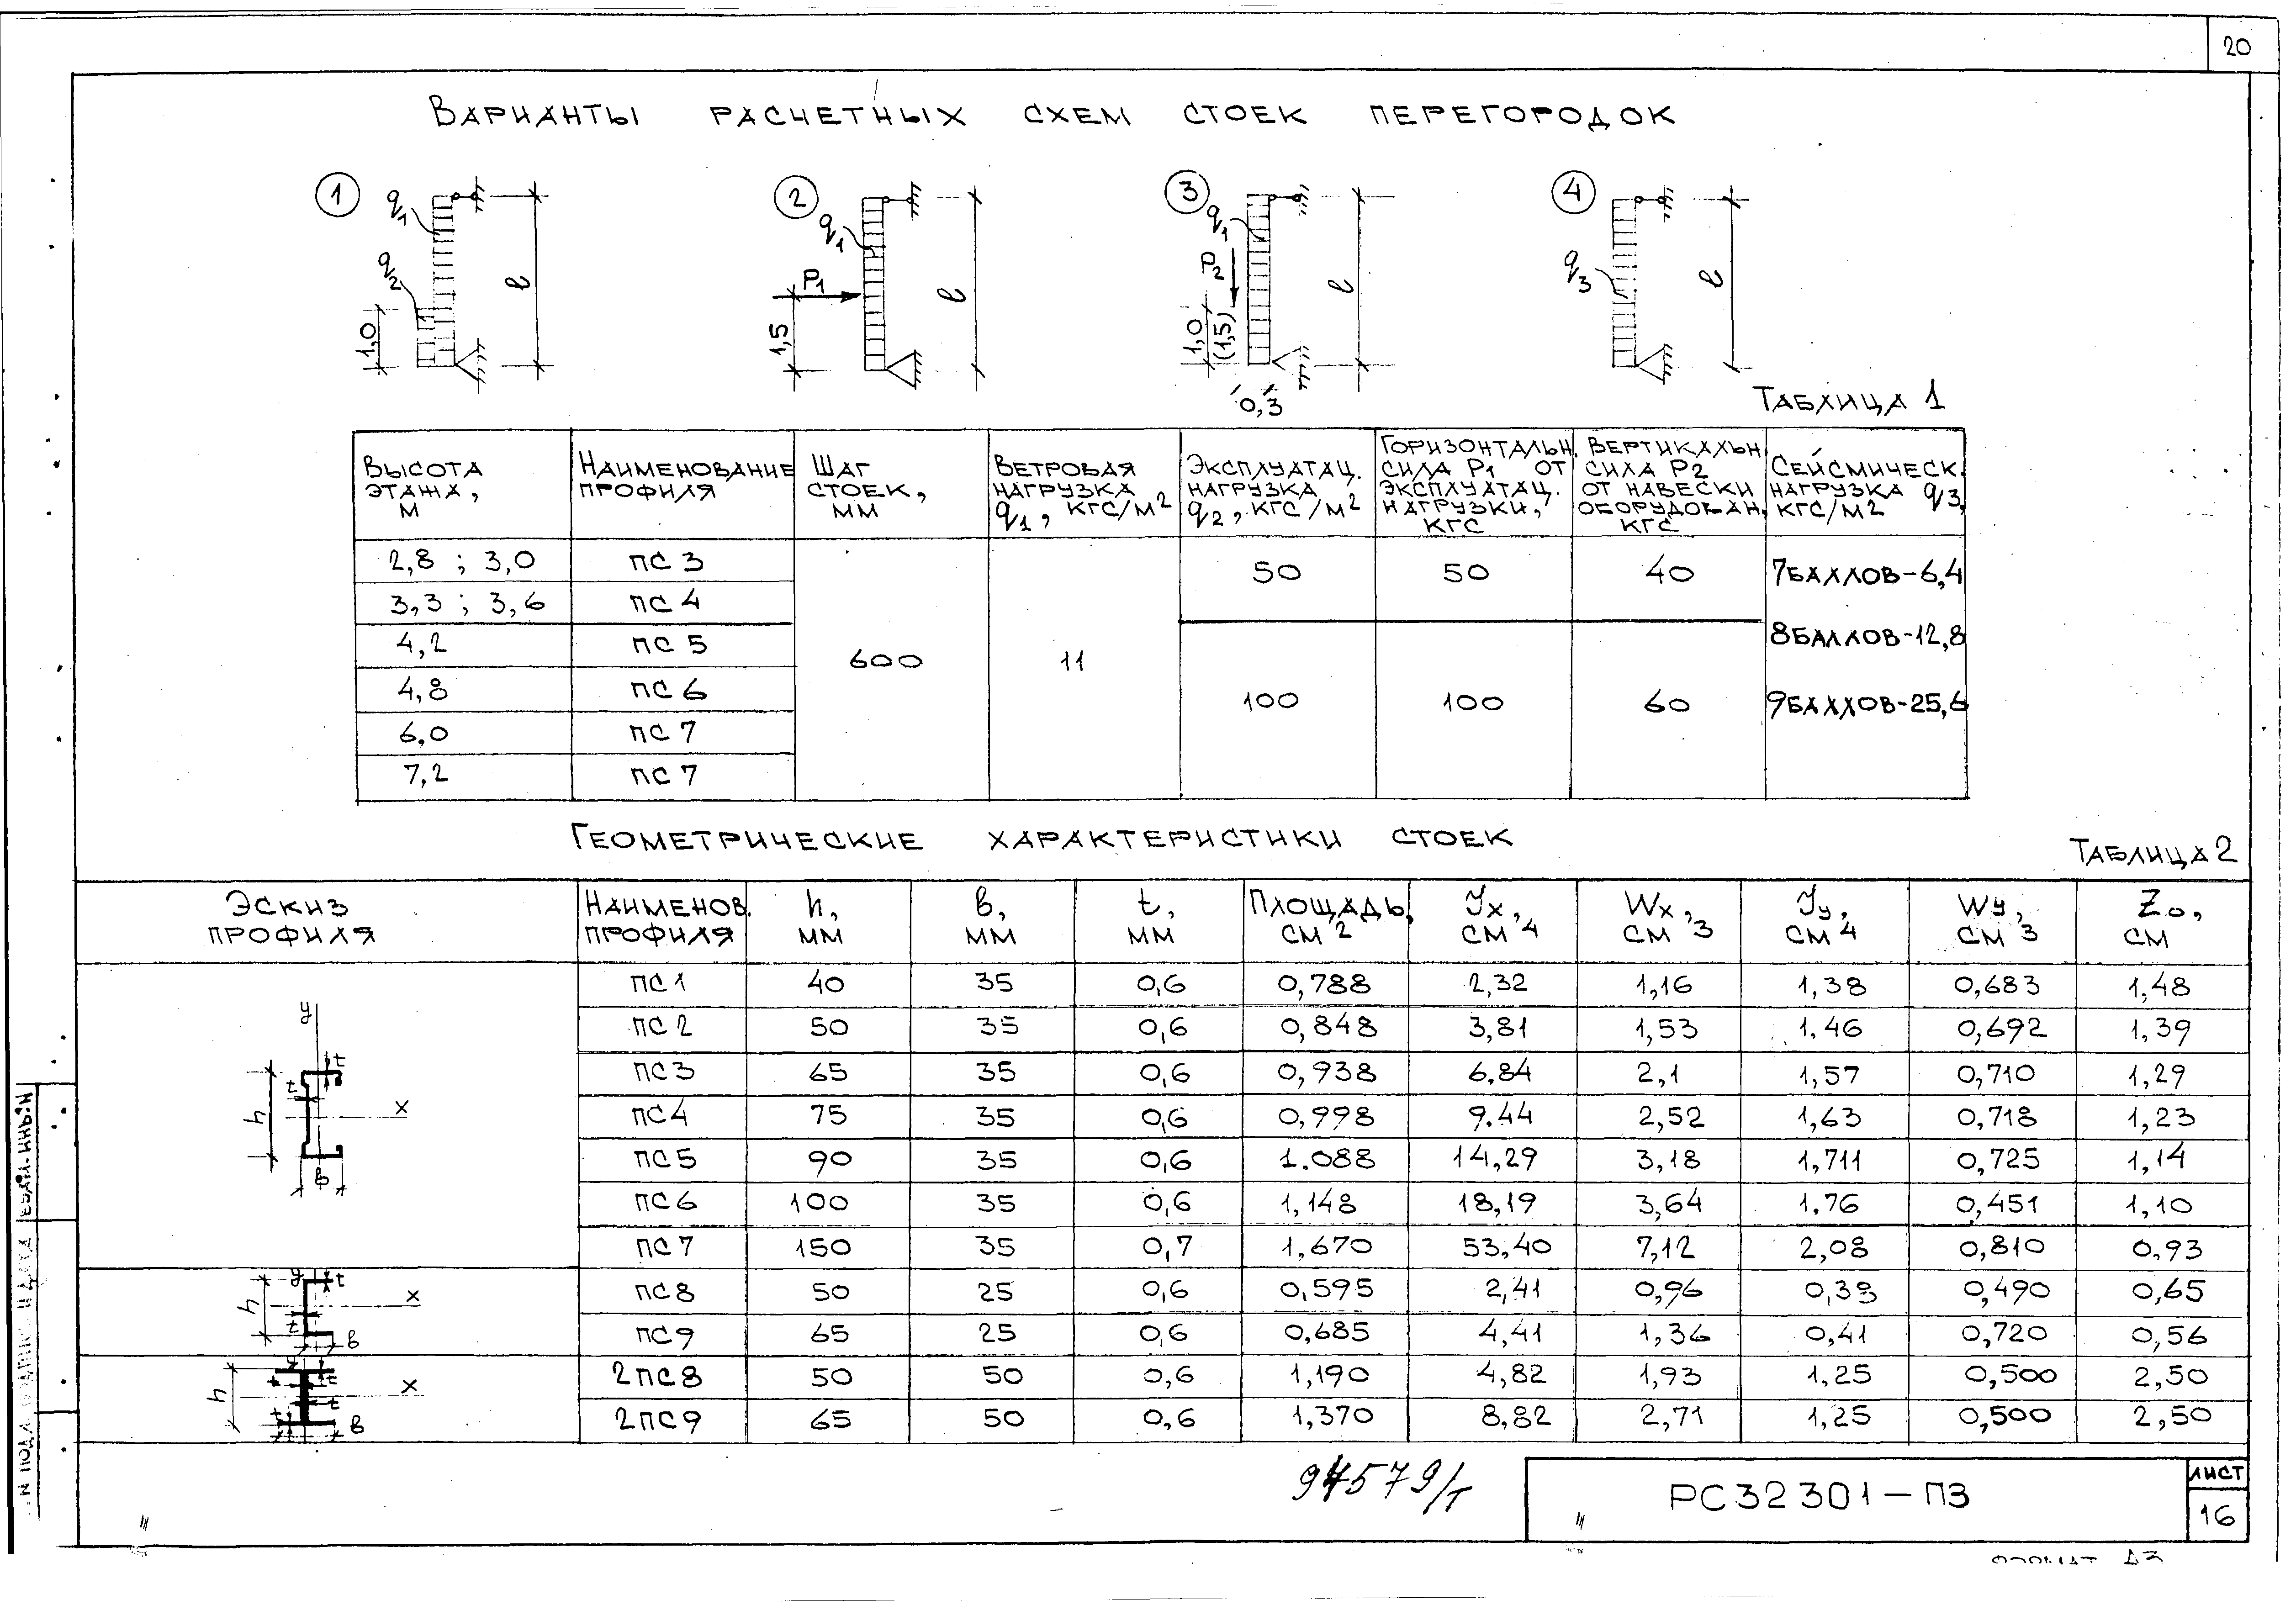 20
Варианты расчетных схем стоек перегородок
1 q1 q2 1,0 l
2 q1 P1 1,5 l
3 q1 P2 1,0 (1,5) 0,3 l
4 q3 l
Таблица 1
Высота этажа, м | Наименование профиля | Шаг стоек, мм | Ветровая нагрузка q1, кгс/м2 | Эксплуатац. нагрузка q2, кгс/м2 | Горизонтальн. сила P1 от эксплуатац. нагрузки, кгс | Вертикальн. сила P2 от навески оборудован. кгс | Сейсмическ. нагрузка q3, кгс/м2
2,8 ; 3,0 | ПС 3 | 600 | 11 | 50 | 50 | 40 | 7баллов-6,4
3,3 ; 3,6 | ПС 4
4,2 | ПС 5 | 8баллов-12,8
4,8 | ПС 6 | 100 | 100 | 60 | 9баллов-25,6
6,0 | ПС 7
7,2 | ПС 7
Геометрические характеристики стоек
Таблица 2
Эскиз профиля | Наименов. профиля | h, мм | в, мм | t, мм | Площадь, см2 | Jx, см4 | Wx, см3 | Jy, см4 | Wy, см3 | Zo, см
ПС1 | 40 | 35 | 0,6 | 0,788 | 2,32 | 1,16 | 1,38 | 0,683 | 1,48
ПС2 | 50 | 35 | 0,6 | 0,848 | 3,81 | 1,53 | 1.46 | 0,692 | 1,39
ПС3 | 65 | 35 | 0,6 | 0,938 | 6.84 | 2,1 | 1,57 | 0,710 | 1,29
ПС4 | 75 | 35 | 0,6 | 0,998 | 9.44 | 2,52 | 1,63 | 0,718 | 1,23
ПС5 | 90 | 35 | 0,6 | 1.088 | 14,29 | 3,18 | 1,711 | 0,725 | 1,14
ПС6 | 100 | 35 | 0,6 | 1,148 | 18,19 | 3,64 | 1.76 | 0,451 | 1,10
ПС7 | 150 | 35 | 0,7 | 1,670 | 53,40 | 7,12 | 2,08 | 0,810 | 0,93
ПС8 | 50 | 25 | 0,6 | 0,595 | 2,41 | 0,96 | 0,38 | 0,490 | 0,65
ПС9 | 65 | 25 | 0,6 | 0,685 | 4,41 | 1,36 | 0,41 | 0,720 | 0,56
2ПС8 | 50 | 50 | 0,6 | 1,190 | 4,82 | 1,93 | 1,25 | 0,500 | 2,50
2ПС9 | 65 | 50 | 0,6 | 1,370 | 8,82 | 2,71 | 1,25 | 0,500 | 2,50
y t t h x в
y t h x t в
y t t h x t t в
94579/т
РС32301-ПЗ
Лист
16
Формат А3